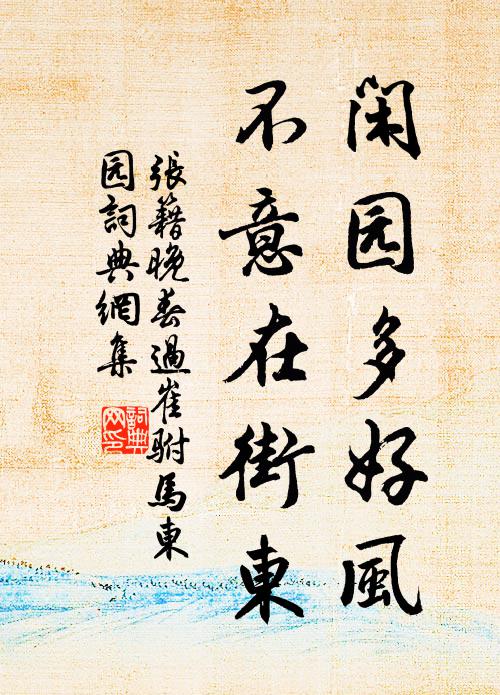 閑园多好風
不意在街東
張籍晚春過崔駙馬東
园詞典網集
詞典
网印